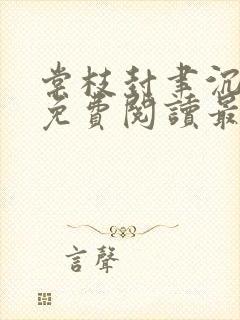 棠枝封聿沉
免費閱讀最
言聲